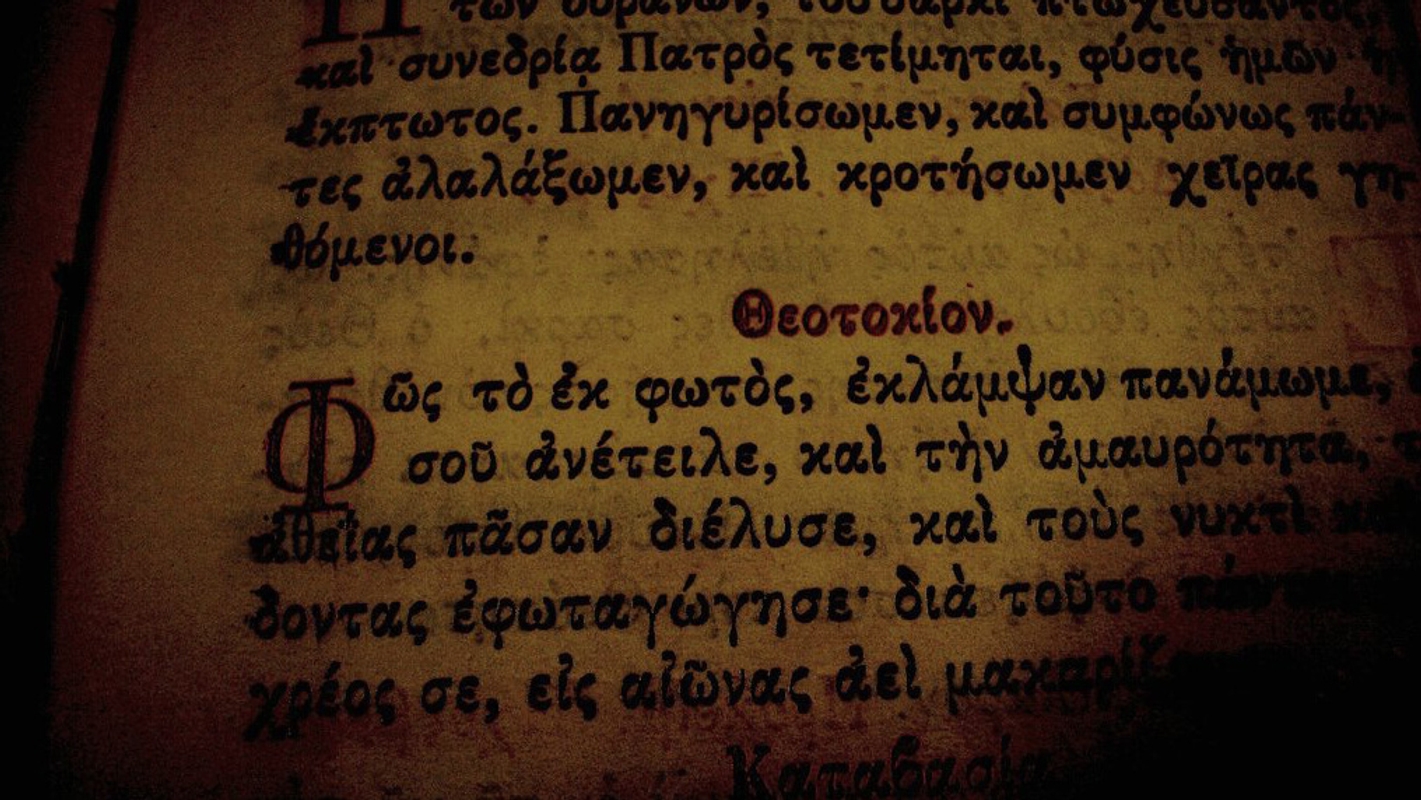 τῶν οὐρανῶν, τοῦ σαρκὶ πτωχεύσαντος,
καὶ συνεδρίᾳ Πατρὸς τετίμηται, φύσις ἡμῶν ἡ
ἔκπτωτος. Πανηγυρίσωμεν, καὶ συμφώνως πάν-
τες ἀλαλάξωμεν, καὶ κροτήσωμεν χεῖρας γη-
θόμενοι.
Θεοτοκίον.
Φῶς τὸ ἐκ φωτὸς, ἐκλάμψαν πανάμωμε,
σοῦ ἀνέτειλε, καὶ τὴν ἀμαυρότητα,
ἀθεΐας πᾶσαν διέλυσε, καὶ τοὺς νυκτὶ
δοντας ἐφωταγώγησε· διὰ τοῦτο
χρέος σε, εἰς αἰῶνας ἀεὶ
Καταβασία